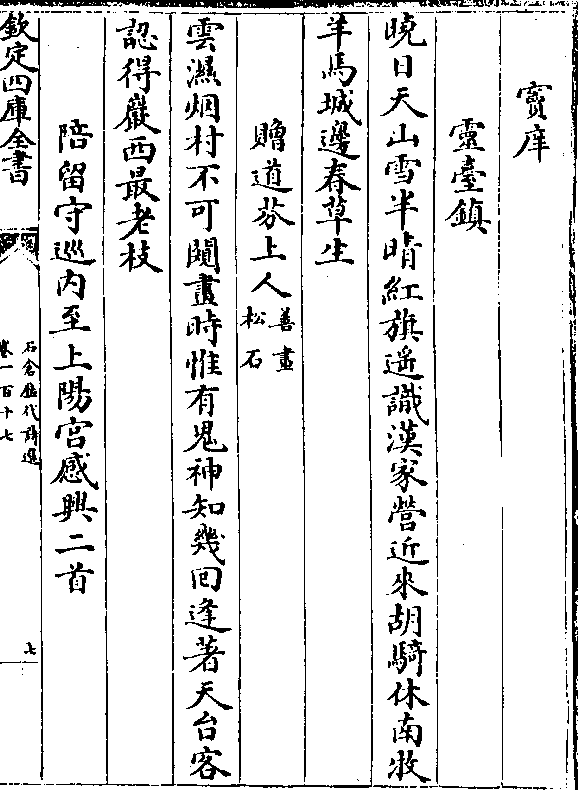 竇庠
靈臺鎮
曉日天山雪半晴紅旗遥識漢家營近來胡騎休南牧
羊馬城邊春草生
贈道芬上人善畫松石
雲濕烟村不可闚畫時惟有鬼神知幾回逢著天台客
認得巖西最老枝
陪留守巡内至上陽宫感興二首
欽定四庫全書
石倉歷代詩選
卷一百十七
七